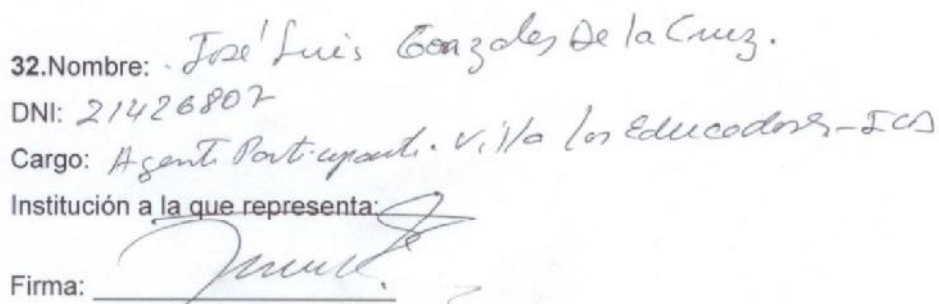 32.Nombre: José Luis Gonzales De la Cruz.
DNI: 21426807
Cargo: Agente Participante. Villa los Educadores - ICA
Institución a la que representa:
Firma: